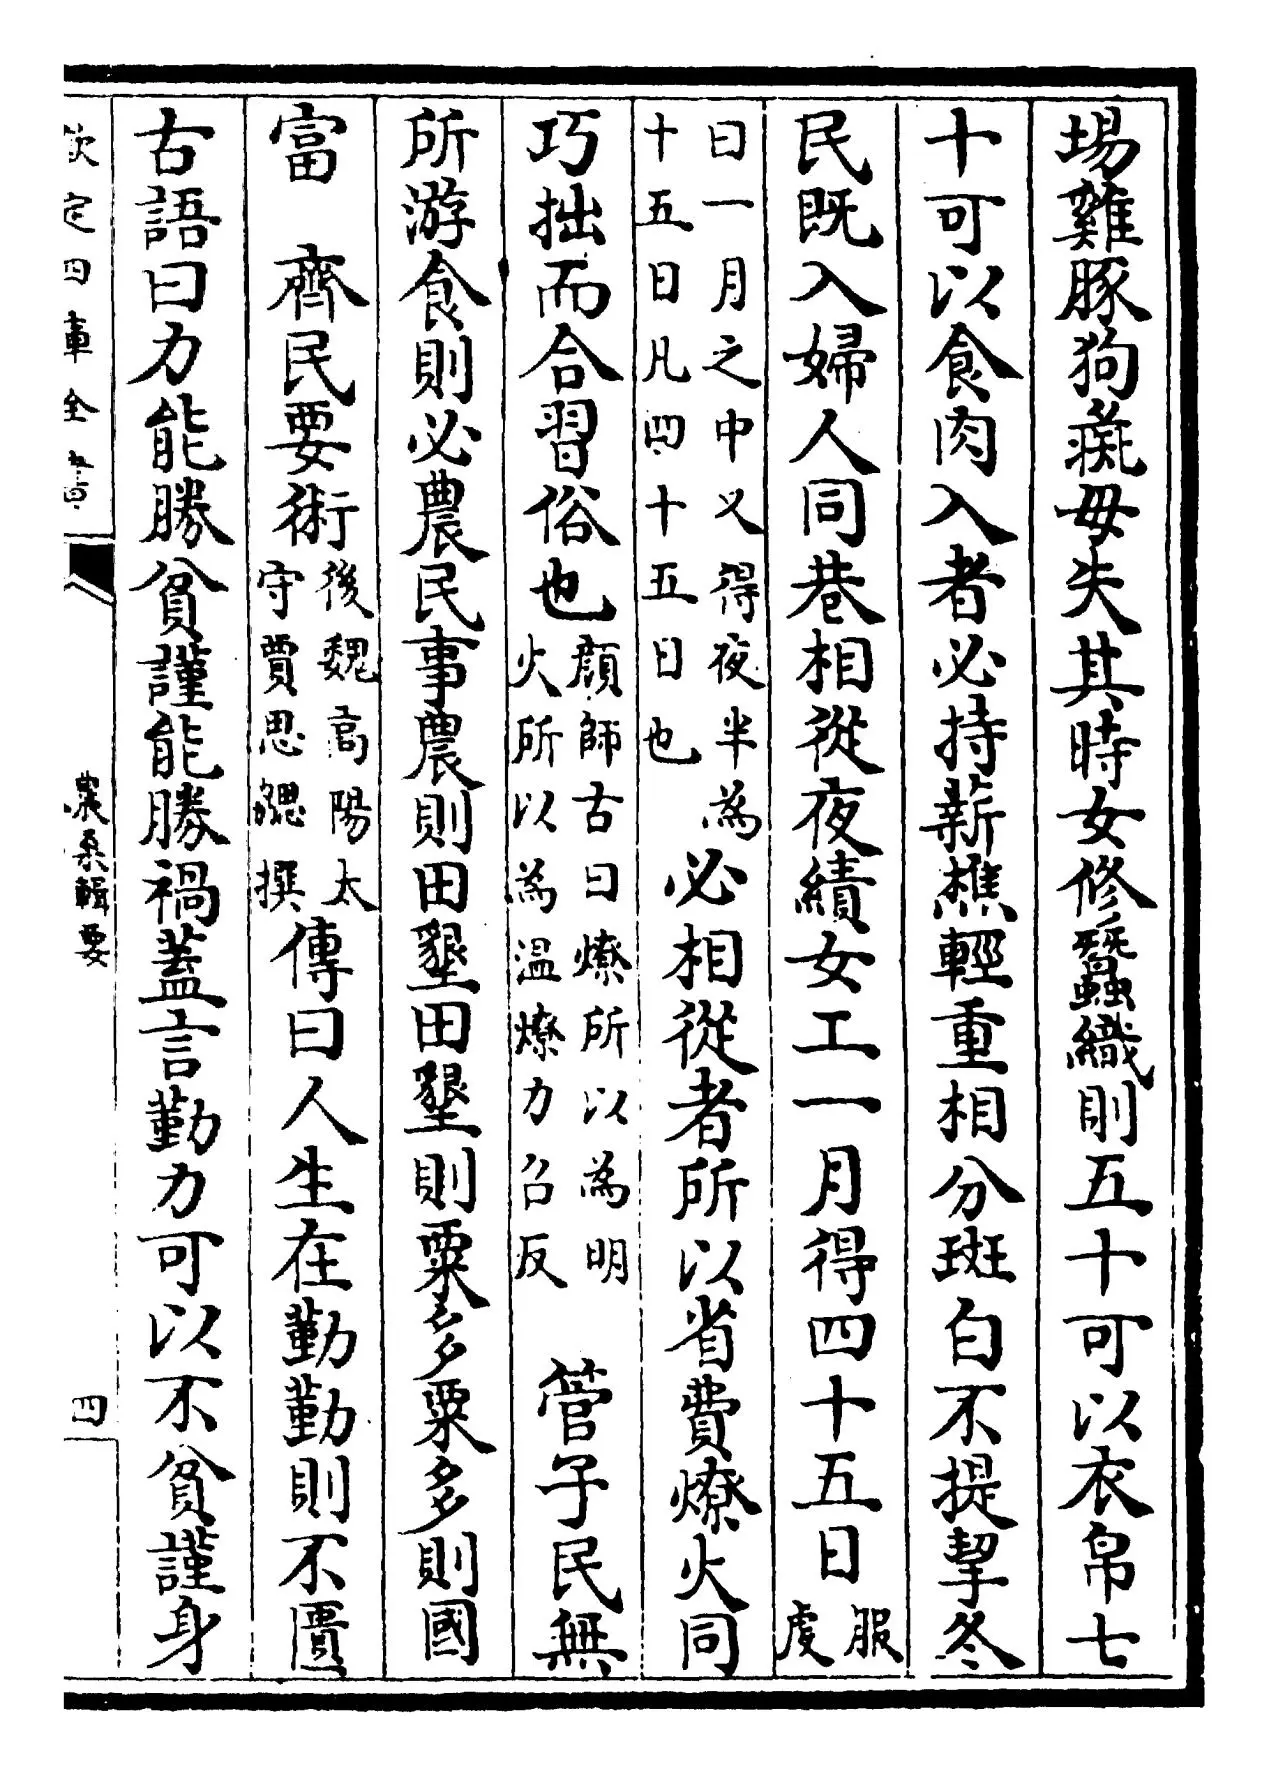 場雞豚狗彘毋失其時女修蠶織則五十可以衣帛七
十可以食肉入者必持薪樵輕重相分斑白不提挈冬
民既入婦人同巷相從夜績女工一月得四十五日服虔
曰一月之中又得夜半為
十五日凡四十五日也
必相從者所以省費燎火同
巧拙而合習俗也
顔師古曰燎所以為明
火所以為温燎力召反
管子民無
所游食則必農民事農則田墾田墾則粟多粟多則國
富 齊民要術
後魏高陽太
守賈思勰撰
傳曰人生在勤勤則不匱
古語曰力能勝貧謹能勝禍蓋言勤力可以不貧謹身
欽定四庫全書
農桑輯要
四